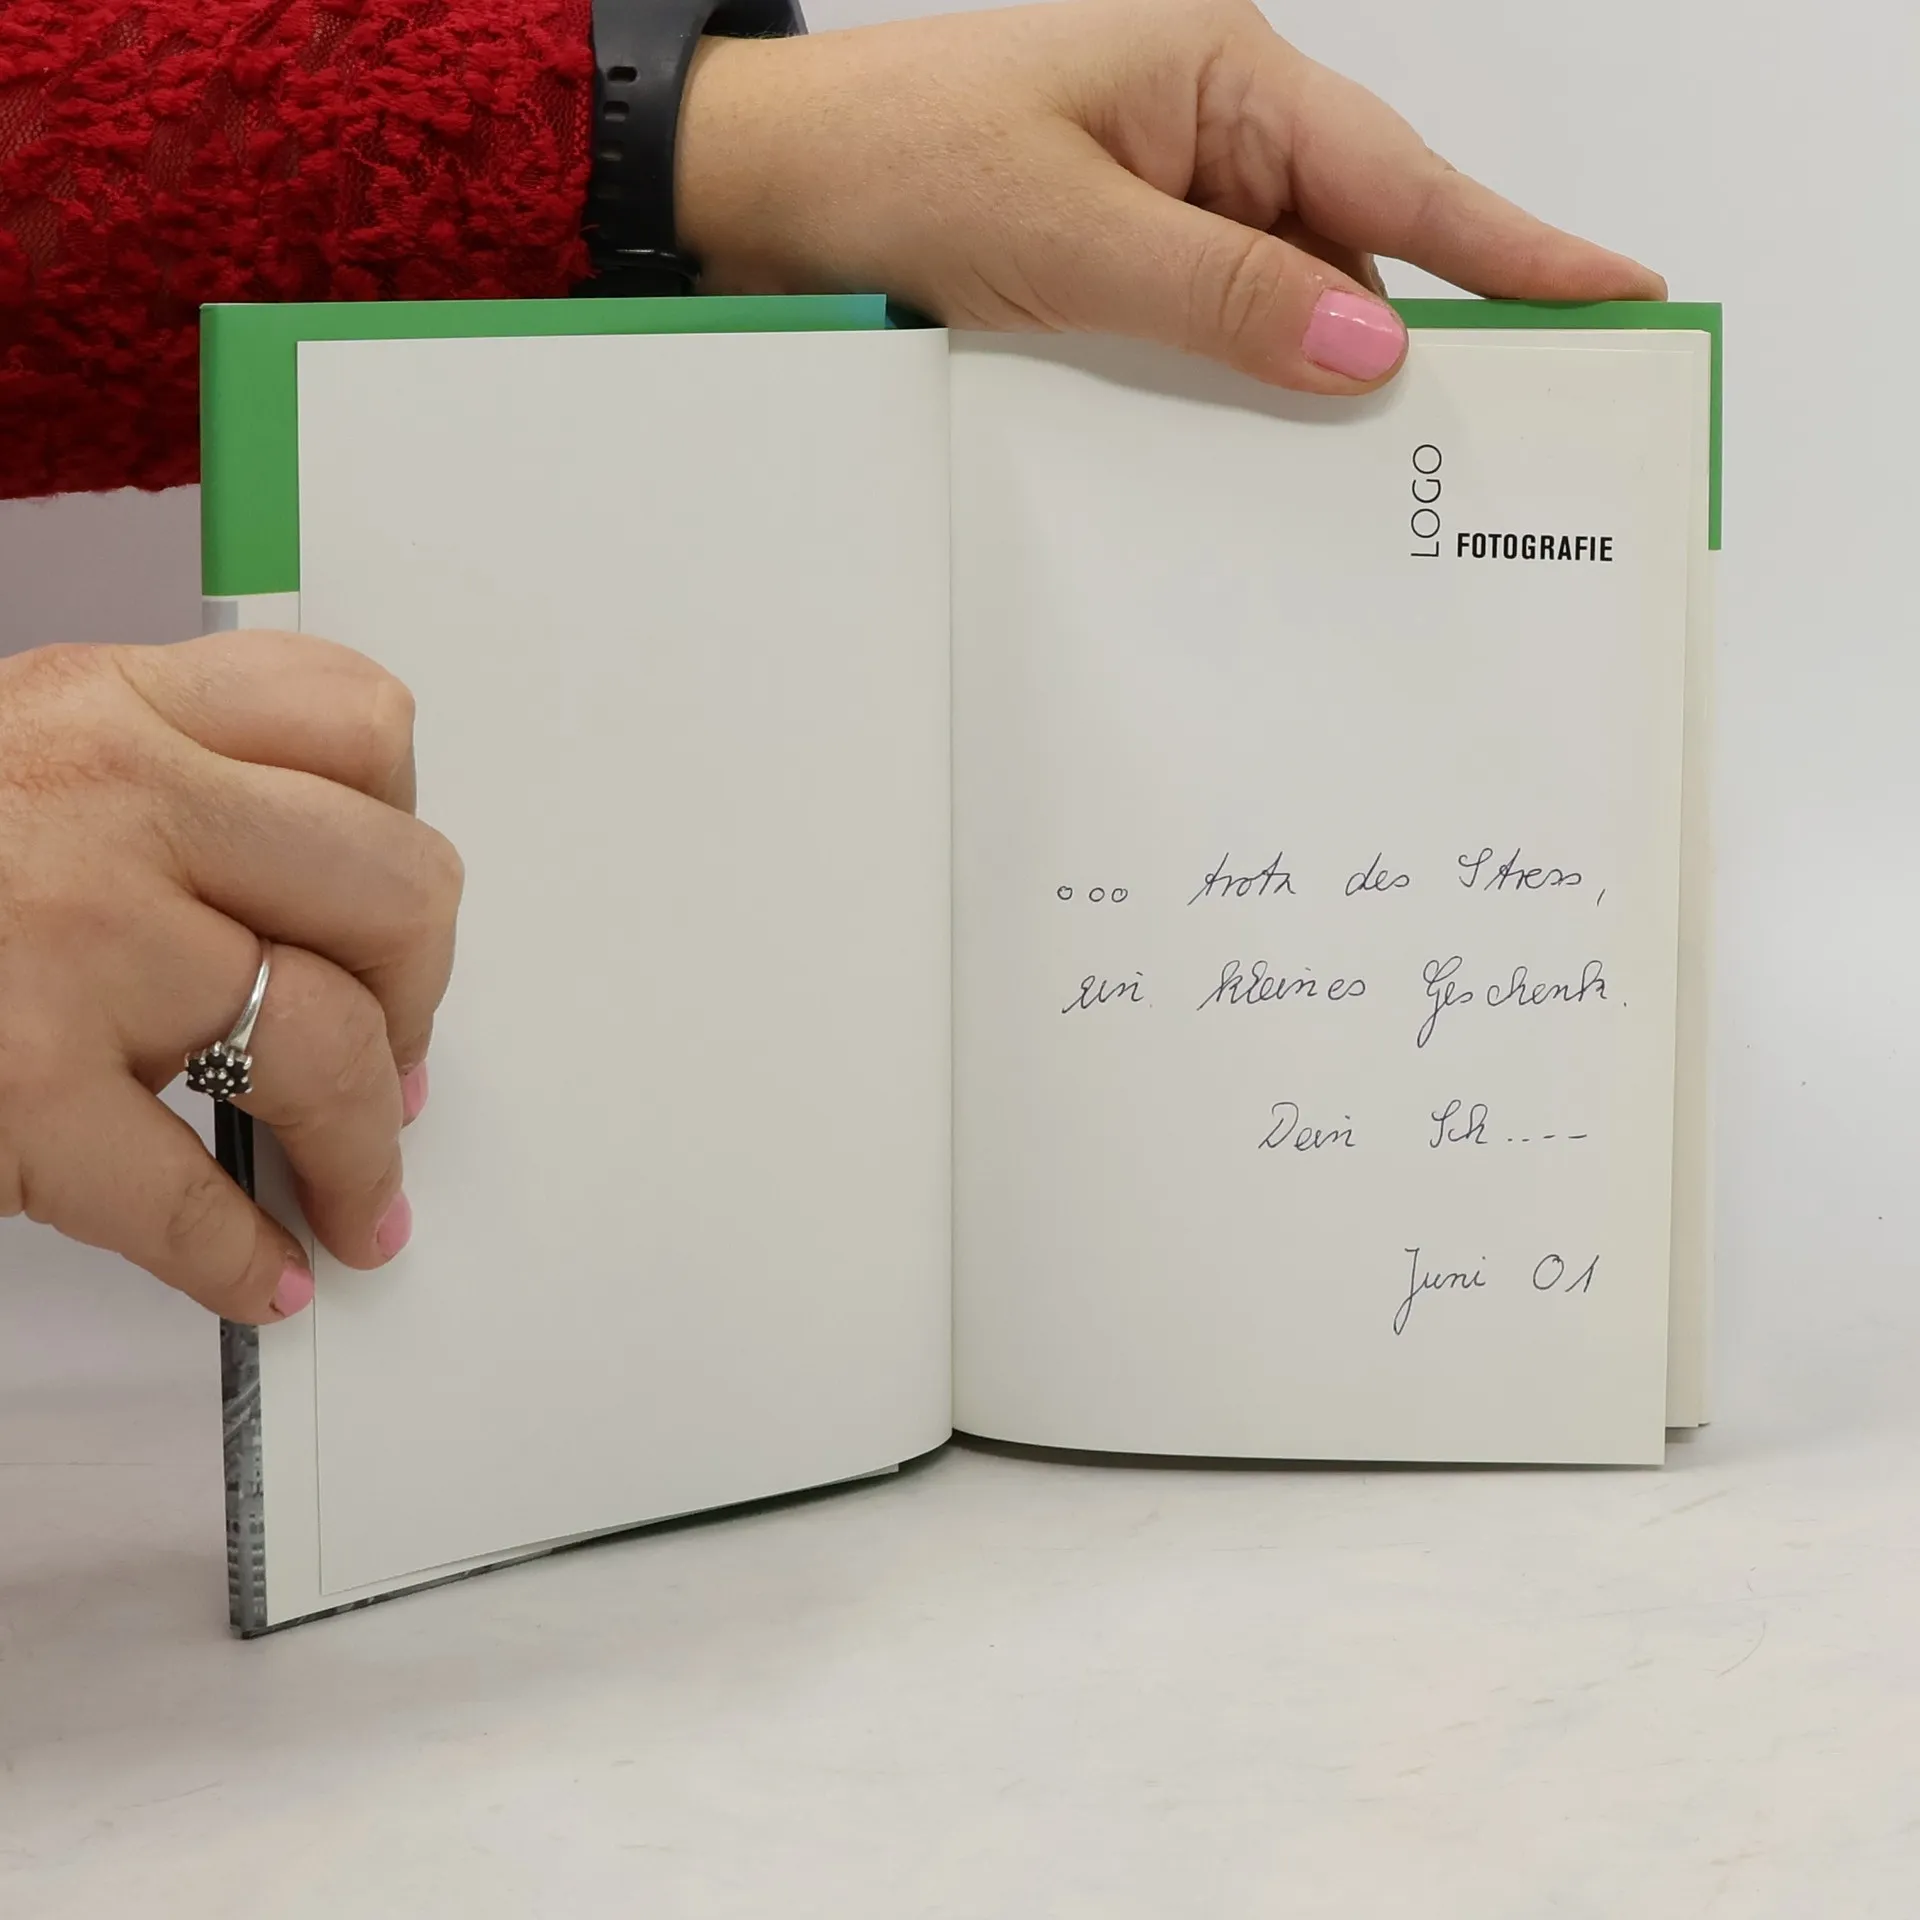 LOGO
FOTOGRAFIE
... trotz des Stress,
ein kleines Geschenk.
Dein Ich....--
Juni 01